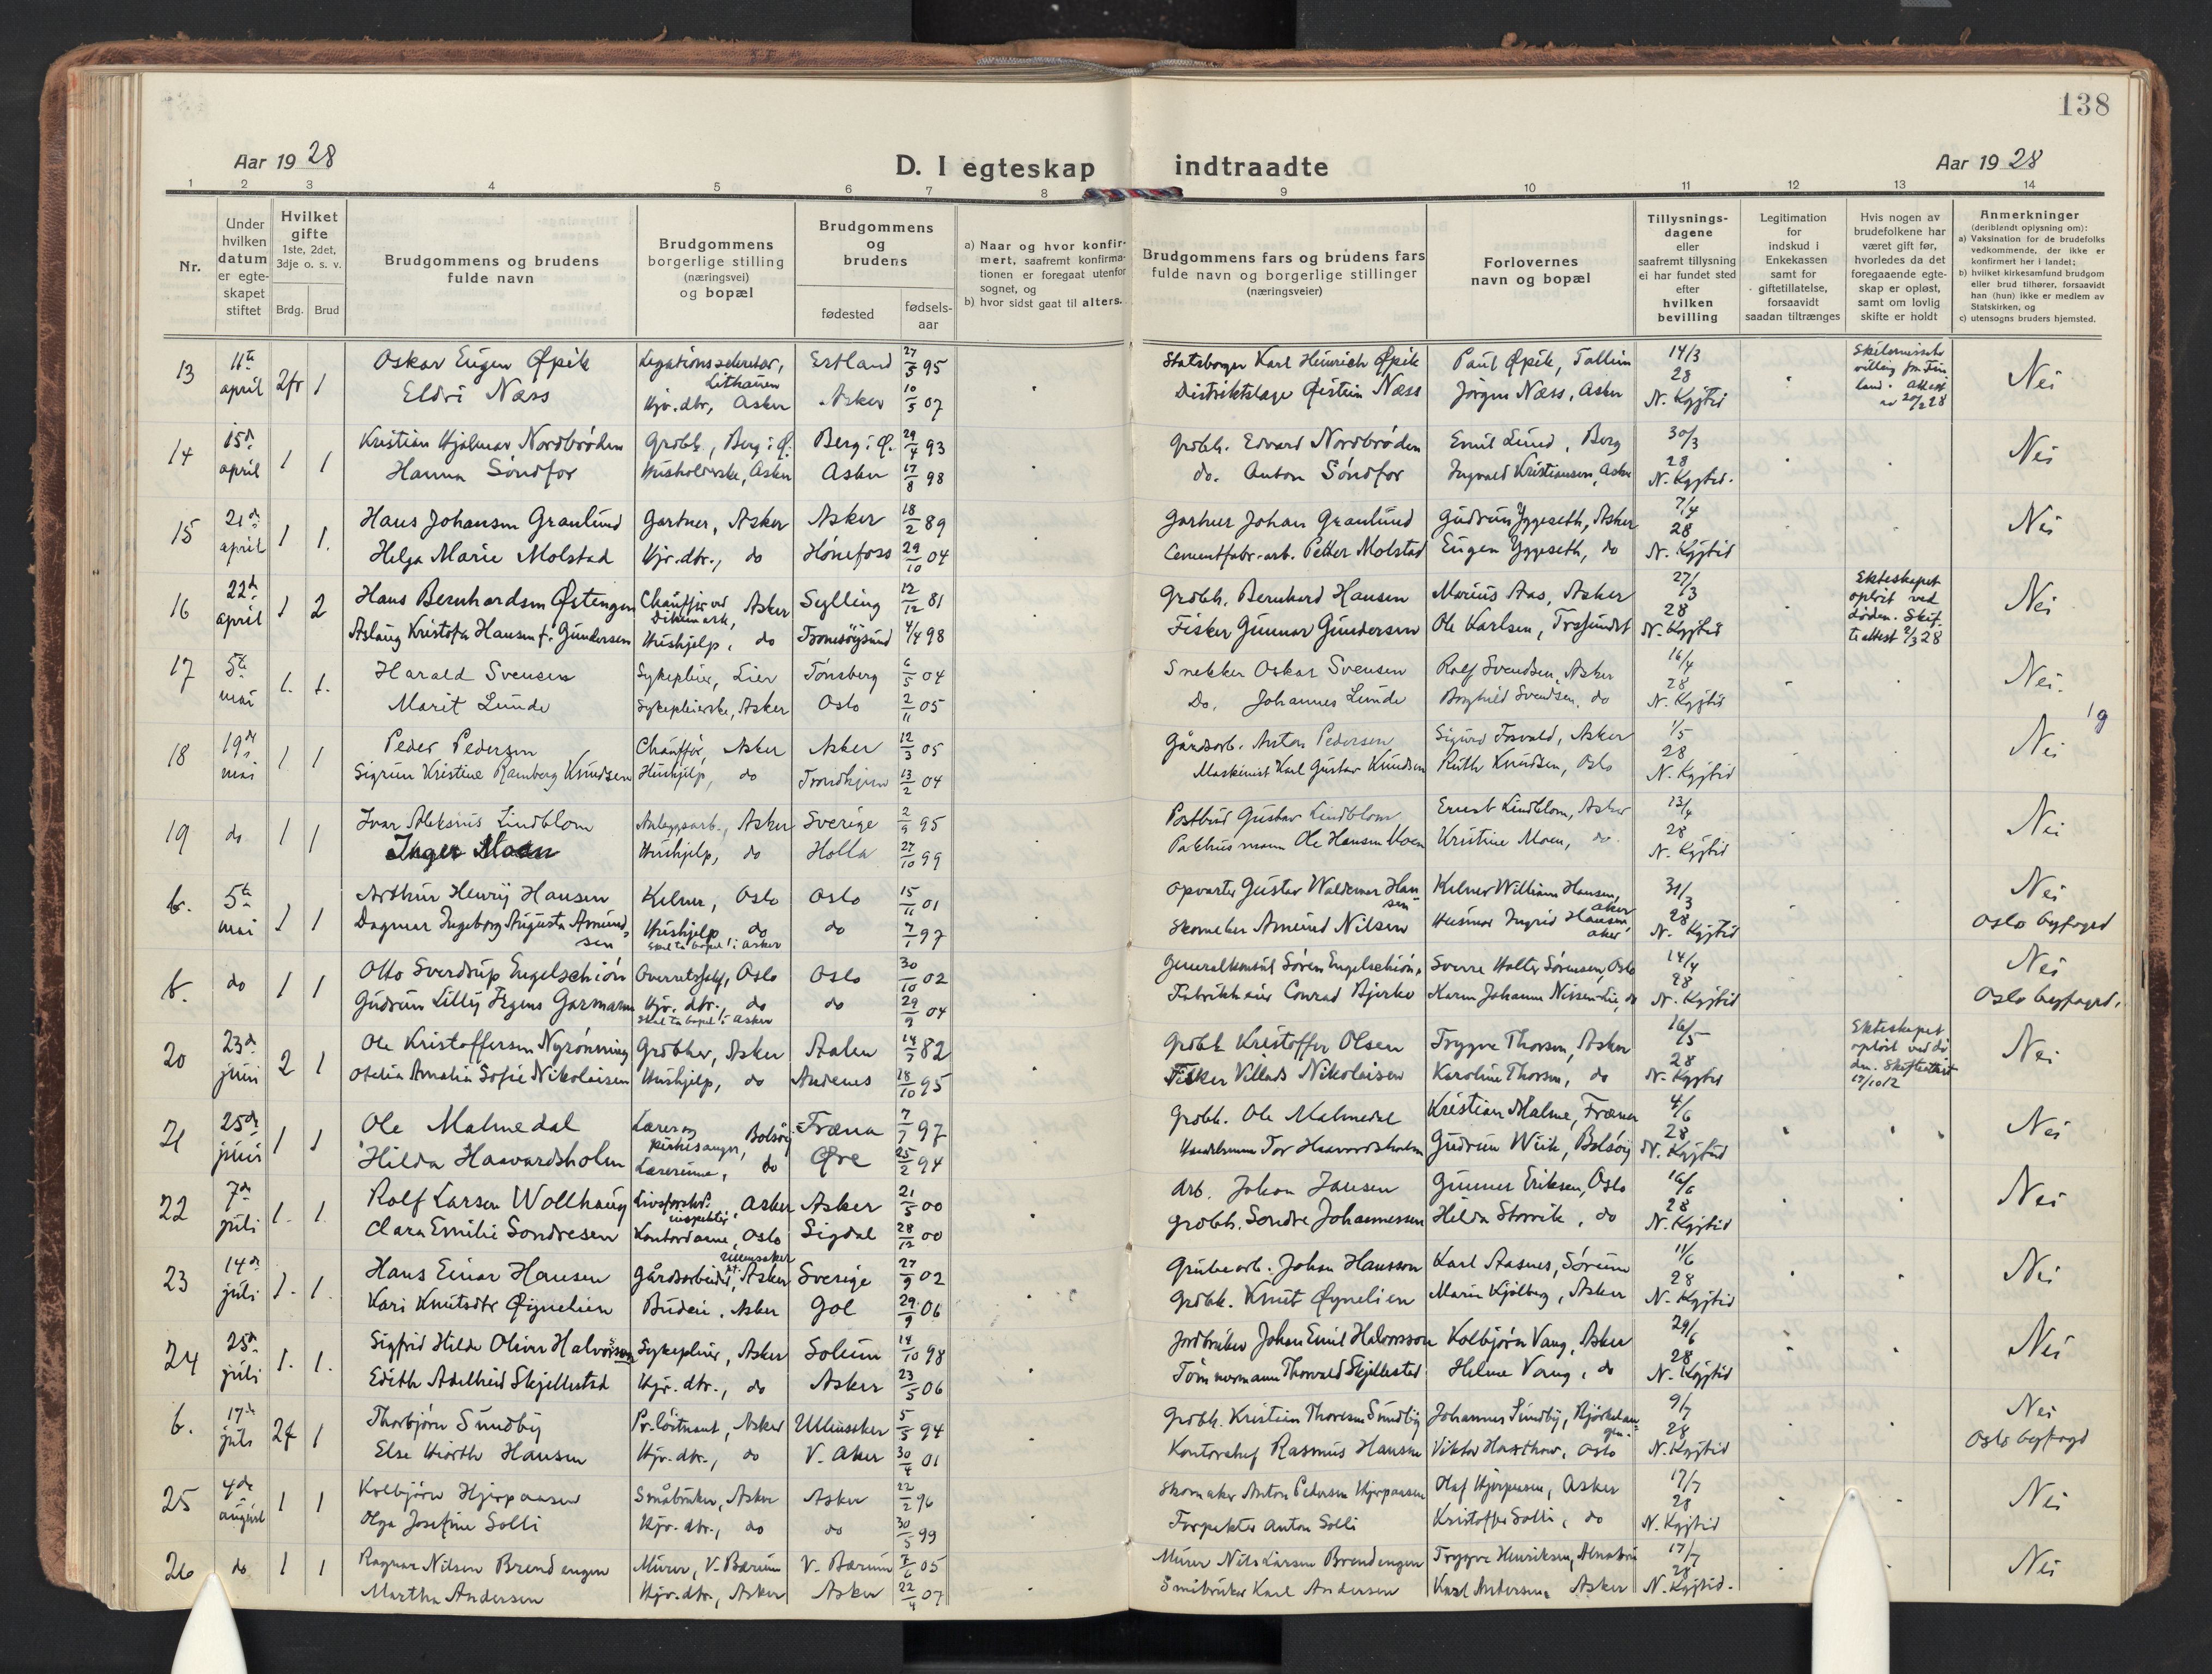 138
Aar 19 28
D. I egteskap indtraadte
Aar 19 28
1 2 3 4 5 6 7 8 9 10 11 12 13 14
Nr.
Under hvilken datum er egteskapet stiftet
Hvilket gifte 1ste, 2det, 3dje o. s. v.
Brdg. Brud
Brudgommens og brudens fulde navn
Brudgommens borgerlige stilling (næringsvei) og bopæl
Brudgommens og brudens
fødested
fødsels-aar
a) Naar og hvor konfirmert, saafremt konfirmationen er foregaat utenfor sognet, og
b) hvor sidst gaat til alters.
Brudgommens fars og brudens fars fulde navn og borgerlige stillinger (næringsveier)
Forlovernes navn og bopæl
Tillysningsdagene eller saafremt tillysning ei har fundet sted efter hvilken bevilling
Legitimation for indskud i Enkekassen samt for giftetillatelse, forsaavidt saadan tiltrænges
Hvis nogen av brudefolkene har været gift før, hvorledes da det foregaaende egteskap er opløst, samt om lovlig skifte er holdt
Anmerkninger (deriblandt oplysning om):
a) Vaksination for de brudefolks vedkommende, der ikke er konfirmert her i landet;
b) hvilket kirkesamfund brudgom eller brud tilhører, forsaavidt han (hun) ikke er medlem av Statskirken, og
c) utensogns bruders hjemsted.
13 11te april 2fr 1 Oskar Eugen Øpik Legationssekretær, Lithauen Estland 27/5 95 Statsborger Karl Heinrich Øpik Paul Øpik, Tallin 14/3 28 Nei
Eldri Næss Hjv. dtr, Asker Asker 10/5 07 Distriktslæge Øistein Næss Jørgen Næss, Asker N. Kgjtid
14 15de april 1 1 Kristian Hjalmar Nordbrøden Grdbr., Berg i Ø. Berg i Ø. 29/4 93 Grdbr. Edvard Nordbrøden Emil Lund, Berg 30/3 28 Nei
Hanna Søndfor Husholderske, Asker Asker 17/8 98 do. Anton Søndfor Ingvald Kristiansen, Asker N. Kgjtid.
15 21de april 1 1. Hans Johansen Granlund Gartner, Asker Asker 18/2 89 Gartner Johan Granlund Gudrun Yggeseth, Asker 7/4 28 Nei
Helga Marie Molstad Hjv. dtr., do Hønefoss 29/10 04 Cementfabr.-arb. Petter Molstad Eugen Yggeseth, do N. Kgjtid
16 22de april 1 2 Hans Bernhardsen Østengen Chauffør ved Dikemark, Asker Sylling 12/12 81 Grdbr. Bernhard Hansen Marius Aas, Asker 27/3 28 Ekteskapet opløst ved døden. Skifteattest 2/3 28 Nei
Aslaug Kristofa Hansen f. Gundersen Hushjelp, do Tromøysund 4/4 98 Fisker Gunnar Gundersen Ole Karlsen, N. Kgjtid
17 5te mai 1. 1. Harald Svensen Sykepleier, Lier Tønsberg 6/5 04 Snekker Oskar Svensen Rolf Svendsen, Asker 16/4 28 Nei.
Marit Lunde Sykepleierske, Asker Oslo 2/11 05 Do. Johannes Lunde Borghild Svendsen, do N. Kgjtid
18 19de mai 1 1 Peder Pedersen Chauffør, Asker Asker 12/3 05 Gårdsarb. Anton Pedersen Sigurd Fosvald, Asker 1/5 28 Nei
Sigrun Kristine Ramberg Knudsen Hushjelp, do Trondhjem 13/2 04 Maskinist Karl Gustav Knudsen Ruth Knudsen, Oslo N. Kgjtid
19 do 1 1 Ivar Aleksius Lindblom Anleggsarb., Asker Sverige 2/9 95 Postbud Gustav Lindblom Ernst Lindblom, Asker 13/4 28 Nei
Inger Moen Hushjelp, do Holla 27/10 99 Pakhusmann Ole Hansen Moen Kristine Moen, do. N. Kgjtid
b. 5te mai 1 1 Arthur Henry Hansen Kelner, Oslo Oslo 15/11 01 Opvarter Gustav Waldemar Hansen Kelner William Hansen, Aker 31/3 28 Nei
Dagmar Ingeborg Augusta Amundsen Hushjelp do skal ta bopel i Asker do 7/1 97 Skomaker Amund Nilsen Husmor Ingrid Hansen, Aker N. Kgjtid Oslo byfoged
b. do 1 1 Otto Sverdrup Engelschiøn Overretssakf., Oslo Oslo 30/10 02 Generalkonsul Søren Engelschiøn Sverre Holter Sørensen, Oslo 14/4 28 Nei
Gudrun Lilly Garmann Hjv. dtr., do skal ta bopel i Asker do 29/9 04 Fabrikkeier Conrad Bjerke Karen Johanne Nissen-Lie, do N. Kgjtid Oslo byfoged.
20 23de juni 2 1 Ole Kristoffersen Nyrønning Grdbr., Asker Aalen 14/5 82 Grdbr. Kristoffer Olsen Trygve Thorsen, Asker 16/5 28 Ekteskapet opløst ved døden. Skifteattest 17/10 12 Nei
Otelia Amalia Sofie Nikolaisen Hushjelp, do Andenes 18/10 95 Fisker Villads Nikolaisen Karoline Thorsen, do N. Kgjtid
21 25de juni 1 1 Ole Malmedal Lærer og kirkesanger, Bolsøy Fræna 7/7 97 Grdbr. Ole Malmedal Kristian Malme, Fræna 4/6 28 Nei
Hilda Haavardsholm Lærerinne, do Øre 25/2 94 Handelsmann Tor Haavardsholm Gudrun Wiik, Bolsøy N. Kgjtid
22 7de juli 1. 1. Rolf Larsen Wollhaug Livsforsikr. inspektør, Asker Asker 21/5 00 Arb. Johan Jansen Gunnar Eriksen, Oslo 16/6 28 Nei
Clara Emilie Sondresen Kontordame, Oslo Sigdal 28/12 00 Grdbr. Sondre Johannessen Hilda Storvik, do N. Kgjtid
23 14de juli 1. 1. Hans Einar Hansen Gårdsarbeider, Asker Sverige 27/9 02 Grubearb. Johan Hansson Karl Aasnes, Sørum 11/6 28 Nei
Kari Knutsdtr Øynelien Budeie, Asker Gol 29/9 06 Grdbr. Knut Øynelien Marie Kjølberg, Asker N. Kgjtid
24 25de juli 1. 1. Sigfrid Hilde Oliver Halvorsson Sykepleier, Asker Solum 14/10 98 Jordbruker Johan Emil Halvorsson Kolbjørn Vang, Asker 29/6 28 Nei
Edith Adelheid Skjellestad Hjv. dtr., do Asker 23/5 06 Tømmermann Thorvald Skjellestad Helene Vang, do N. Kgjtid
b. 17de juli 2f 1 Thorbjørn Sundby Pr.løitnant, Asker Ullensaker 5/5 94 Grdbr. Kristian Thoresen Sundby Johannes Sundby, Bjørkelangen 9/7 28 Nei
Else Hiorth Hansen Hjv. dtr., do V. Aker 30/4 01 Kontorchef Rasmus Hansen Viktor Oslo N. Kgjtid Oslo byfogd
25 4de august 1 1 Kolbjørn Hjerpaasen Småbruker, Asker Asker 22/2 96 Skomaker Anton Pedersen Hjerpaasen Olaf Hjerpaasen, Asker 17/7 28 Nei
Olga Josefine Solli Hjv. dtr., do do 30/5 99 Forpakter Anton Solli Kristoffer Solli, do N. Kgjtid
26 do 1 1 Ragnar Nilsen Brendengen Murer, V. Bærum V. Bærum 7/6 05 Murer Nils Larsen Brendengen Trygve Henriksen, 17/7 28 Nei
Martha Andersen Hjv. dtr., Asker Asker 22/4 07 Småbruker Karl Andersen Karl Andersen, Asker N. Kgjtid.